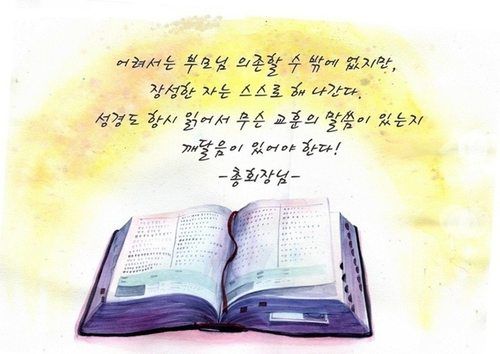 어려서는 부모님 의존할 수 밖에 없지만,
장성한 자는 스스로 해 나간다.
성경도 항시 읽어서 무슨 교훈의 말씀이 있는지
깨달음이 있어야 한다!
-총회장님-